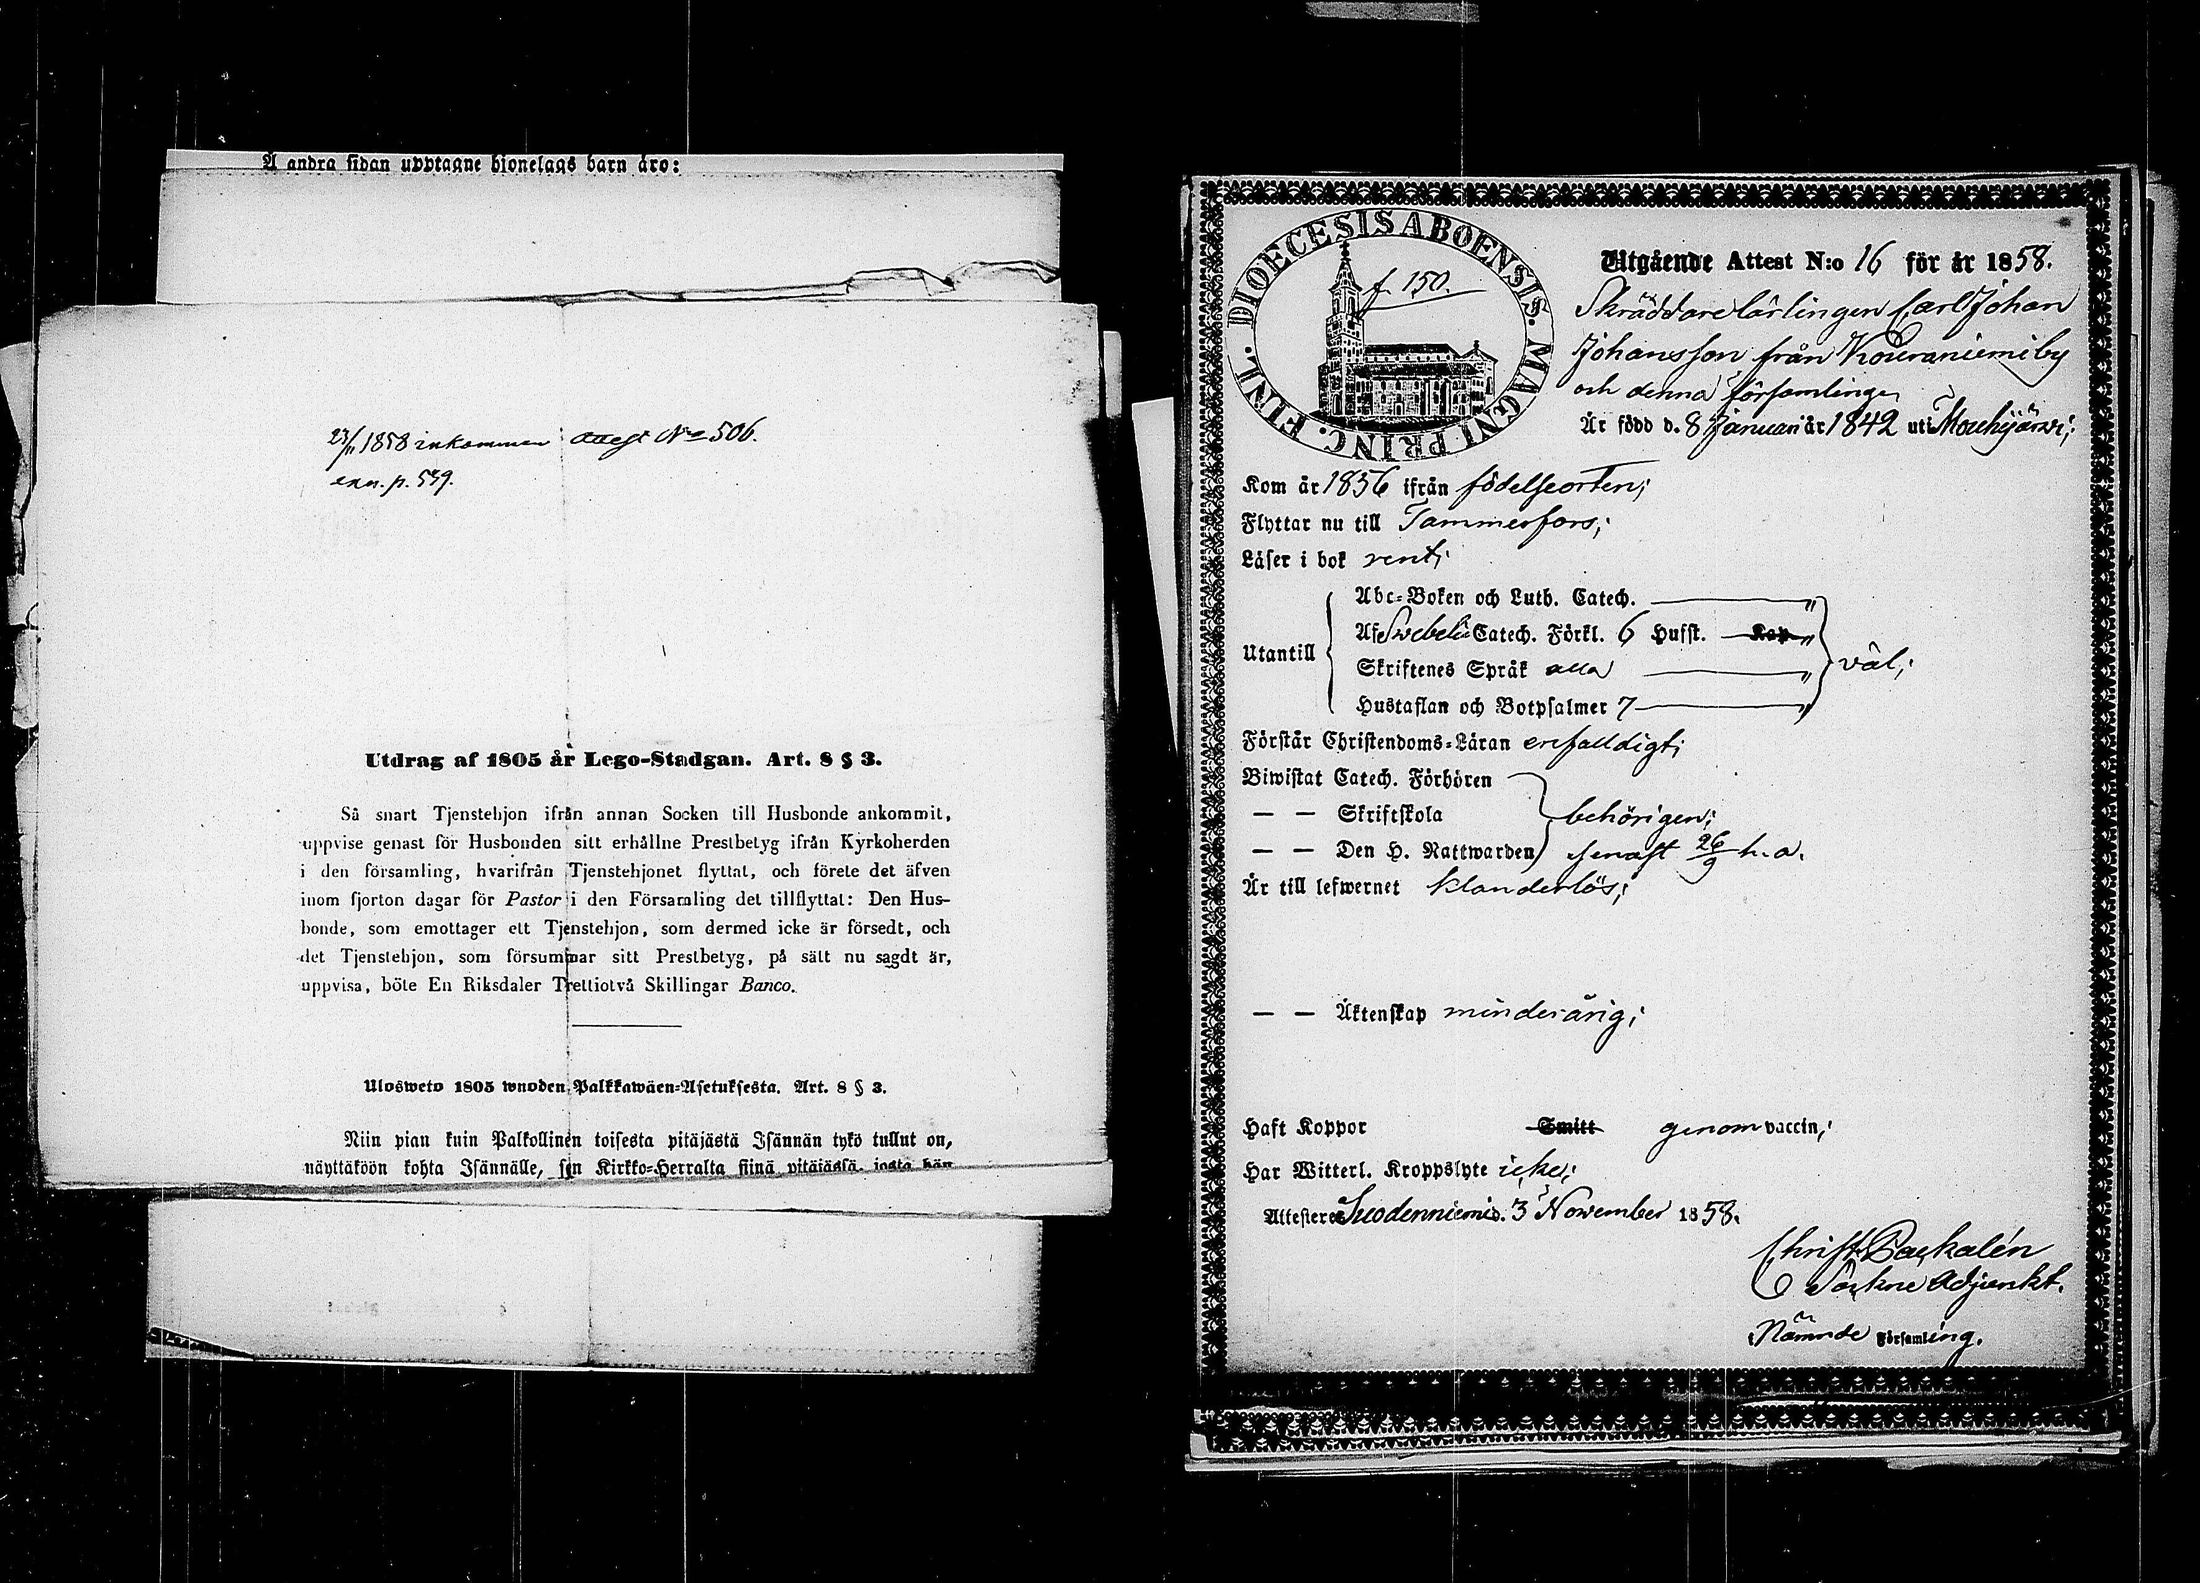 Å andra sidan upptagne hjonelags barn äro:
23/11 1858 inkommen attest No 506.
exn. p. 539.
Utdrag af 1805 år Lego-Stadgan. Art. 8 § 3.
Så snart Tjenstehjon ifrån annan Socken till Husbonde ankommit,
uppvise genast för Husbonden sitt erhållne Prestbetyg ifrån Kyrkoherden
i den församling, hvarifrån Tjenstehjonet flyttat, och förete det äfven
inom fjorton dagar för Pastor i den Församling det tillflyttat: Den Hus-
bonde, som emottager ett Tjenstehjon, som dermed icke är försedt, och
det Tjenstehjon, som försummar sitt Prestbetyg, på sätt nu sagdt är,
uppvisa, böte En Riksdaler Trettiotvå Skillingar Banco.
Ulosweto 1805 wuoden Palkkawäen-Asetuksesta. Art. 8 § 3.
Niin pian kuin Palkollinen toisesta pitäjästä Isännän tykö tullut on,
näyttäköön kohta Isännälle, sen Kirkko-Herralta siinä pitäjässä, josta hän
DIOECESIS ABOENSIS. MAGNI PRINC. FINL.
f. 150.
Utgående Attest N:o 16 för år 1858.
Skräddarelärlingen Carl Johan
Johansson från Kouraniemi by
och denna församlingen
Är född d. 8 Januari år 1842 uti Mouhijärvi;
Kom år 1856 ifrån födelseorten;
Flyttar nu till Tammerfors;
Läser i bok rent;
Utantill
Abc-Boken och Luth. Catech. "
Af Swebelii Catech. Förkl. 6 Hufst. Kap "
Skriftenes Språk alla "
Hustaflan och Botpsalmer 7 "
väl;
Förstår Christendoms-Läran enfalldigt;
Biwistat Catech. Förhören
— — Skriftskola behörigen;
— — Den H. Nattwarden senast 26/9 h. a.
Är till lefwernet klanderlös;
— — Äktenskap minderårig;
Haft Koppor Smitt genom vaccin;
Har Witterl. Kroppslyte icke;
Attesteres Suodenniemi d. 3 November 1858.
Christ. Packalén
Sockne Adjunkt.
Nämnde Församling.